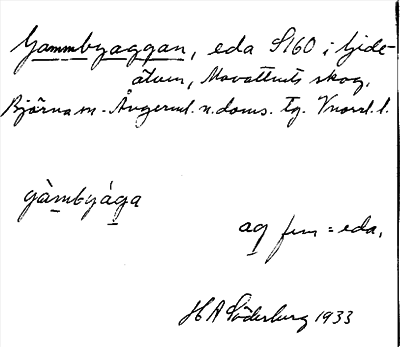 Gammbyaggan, eda S160 i Gide-
åtum, Movattnets skog,
Björna sn. Ångerml. n. doms. tg. Vnorrl. l.
gàmbyága
ag fem = eda.
H A Söderberg 1933